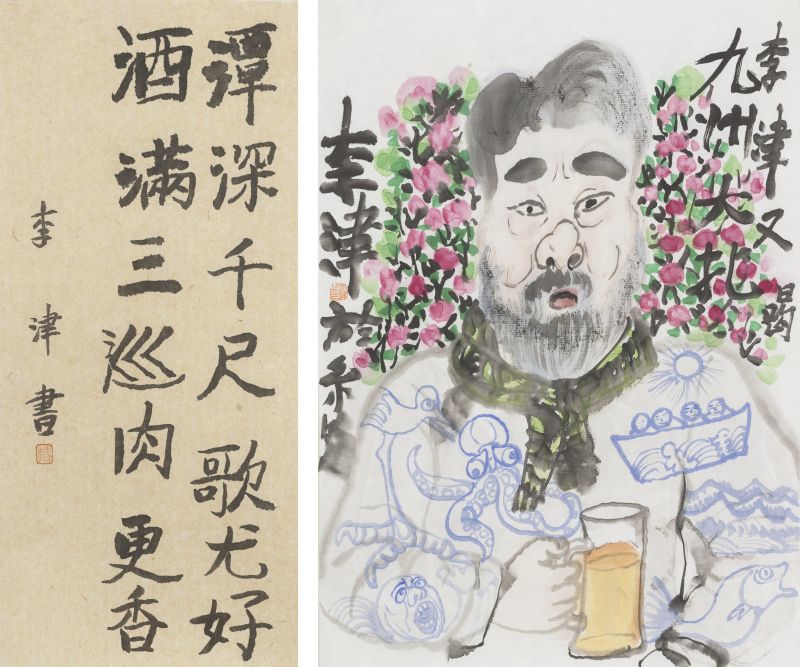 潭深千尺歌尤好
酒满三巡肉更香
李津書
李津又喝
九州大扎
李津於禾